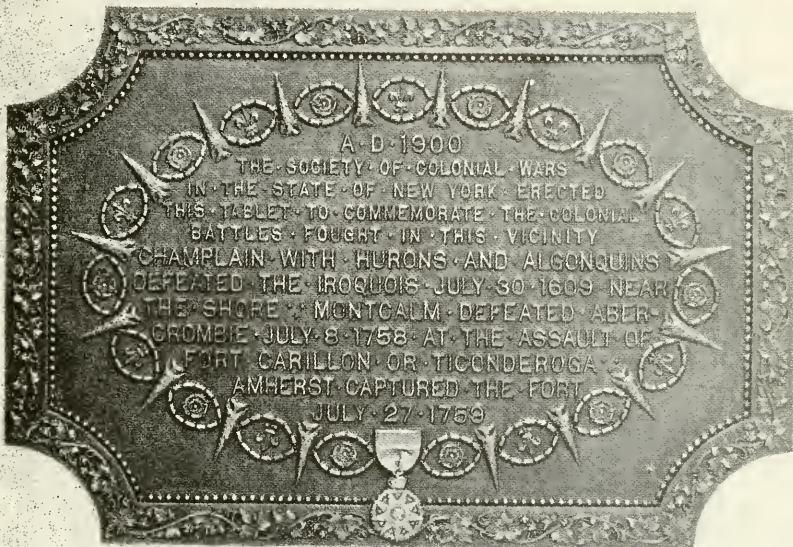 A·D·1900
THE·SOCIETY·OF·COLONIAL·WARS
IN·THE·STATE·OF·NEW YORK·ERECTED
THIS·TABLET·TO·COMMEMORATE·THE·COLONIAL
BATTLES·FOUGHT·IN·THIS·VICINITY
CHAMPLAIN·WITH·HURONS·AND·ALGONQUINS
DEFEATED·THE·IROQUOIS·JULY·30·1609·NEAR
THE·SHORE·MONTCALM·DEFEATED·ABER-
CROMBIE·JULY·8·1758·AT·THE·ASSAULT·OF
FORT·CARILLON·OR·TICONDEROGA
AMHERST·CAPTURED·THE·FORT
JULY·27·1759